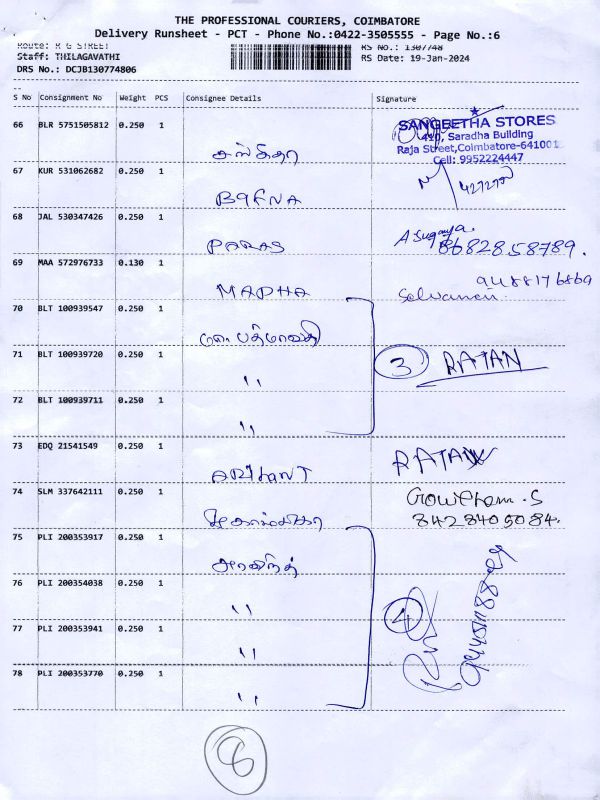 THE PROFESSIONAL COURIERS, COIMBATORE
Delivery Runsheet - PCT - Phone No.:0422-3505555 - Page No.:6
Route: R G STREET RS No.: 1307748
Staff: THILAGAVATHI RS Date: 19-Jan-2024
DRS No.: DCJB130774806
S No Consignment No Weight PCS Consignee Details Signature
66 BLR 5751505812 0.250 1 SANGEETHA STORES
410, Saradha Building
Raja Street,Coimbatore-641001
Cell: 9952224447
67 KUR 531062682 0.250 1
BAFNA
68 JAL 530347426 0.250 1
PARAS 8682858789.
69 MAA 572976733 0.130 1
MADHA Selvamani 9488176869
70 BLT 100939547 0.250 1
பத்மாவதி
71 BLT 100939720 0.250 1
" 3 RATAN
72 BLT 100939711 0.250 1
"
73 EDQ 21541549 0.250 1
ARIHANT RATAN
74 SLM 337642111 0.250 1 Gowtham.S
8428405084.
75 PLI 200353917 0.250 1
அரவிந்த்
76 PLI 200354038 0.250 1
" 4
77 PLI 200353941 0.250 1
"
78 PLI 200353770 0.250 1
"
8